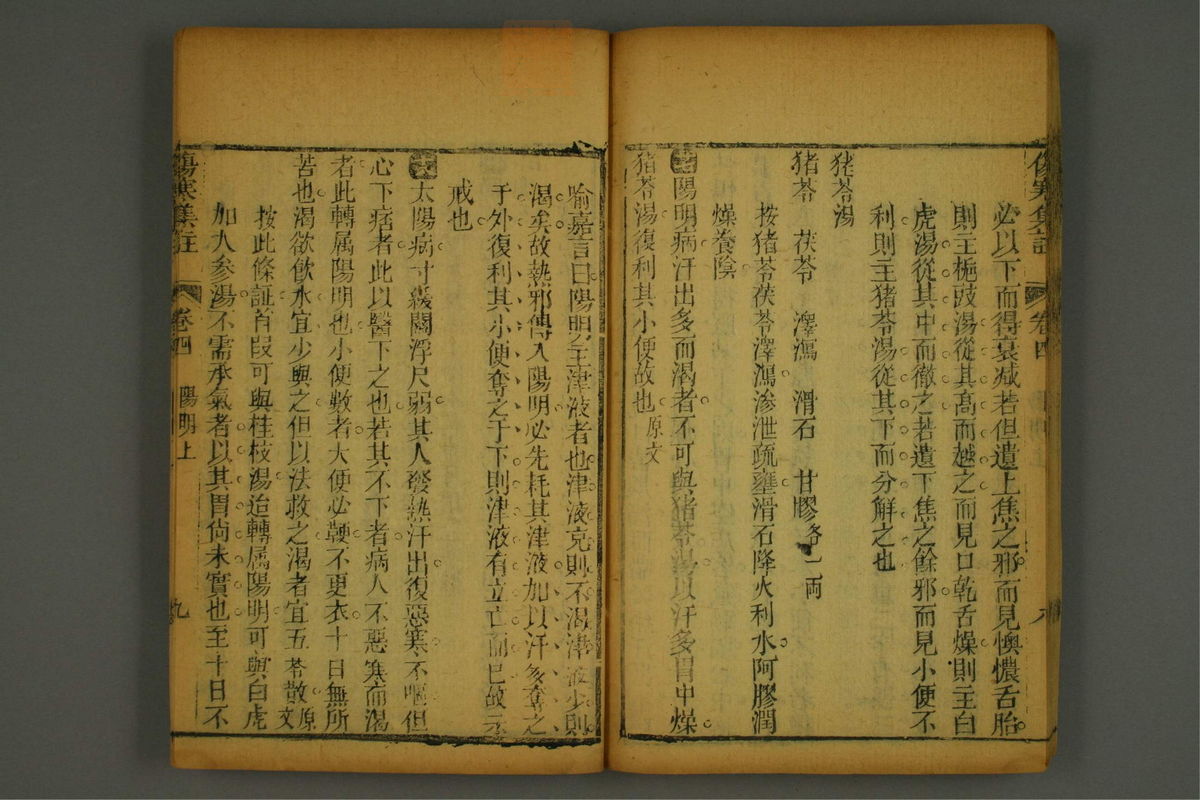 傷寒集註
卷四
必以下而得衰减若但遺上焦之邪而見懊憹舌胎
則主梔豉湯從其高而越之而見口乾舌燥則主白
虎湯從其中而徹之若遺下焦之餘邪而見小便不
利則主猪苓湯從其下而分解之也
猪苓湯
猪苓 茯苓 澤瀉 滑石 甘膠各一両
按猪苓茯苓澤瀉滲泄疏壅滑石降火利水阿膠潤
燥養陰
陽明病汗出多而渴者不可與猪苓湯以汗多胃中燥
猪苓湯復利其小便故也原文
喻嘉言曰陽明主津液者也津液充則不渴津液少則
渴矣故熱邪傳入陽明必先耗其津液加以汗多奪之
于外復利其小便奪之于下則津液有立亡而已故示
戒也
太陽病寸緩關浮尺弱其人發熱汗出復惡寒不嘔但
心下痞者此以醫下之也若其不下者病人不惡寒而渴
者此轉属陽明也小便數者大便必鞕不更衣十日無所
苦也渴欲飲水宜少與之但以法救之渴者宜五苓散原文
按此條証首段可與桂枝湯迨轉属陽明可與白虎
加人参湯不需承氣者以其胃尙未實也至十日不
傷寒集註
卷四
陽明上
九